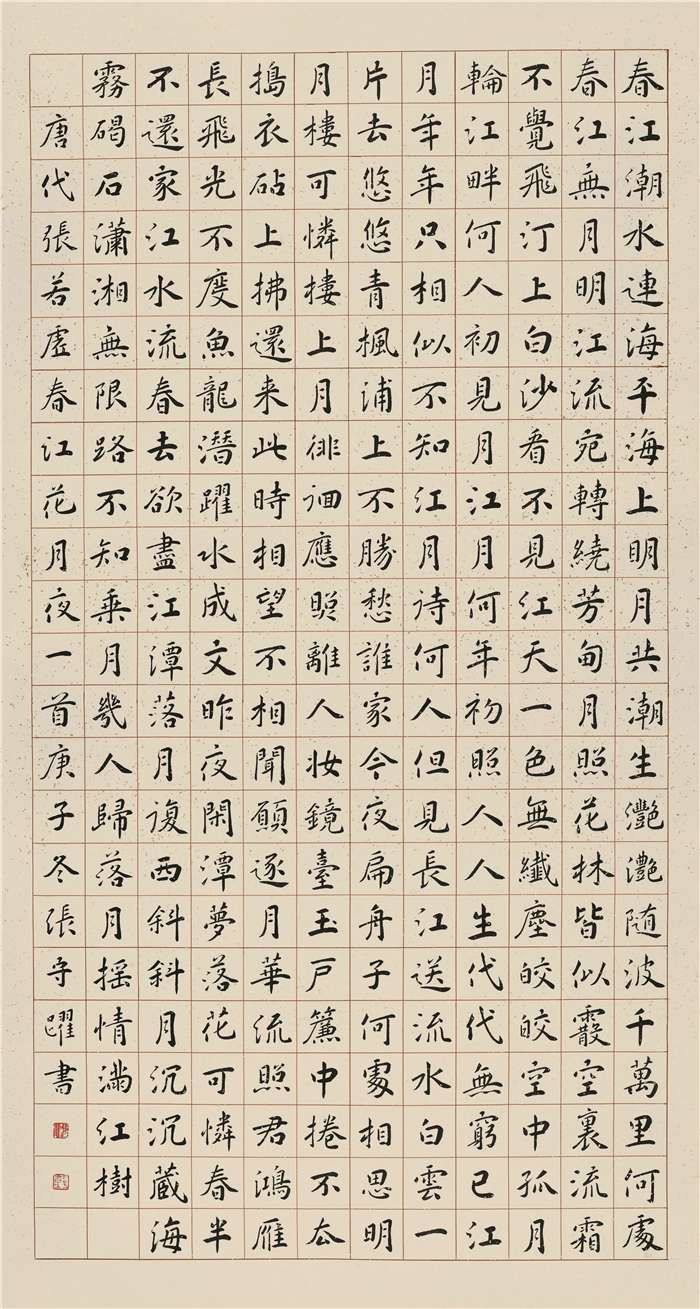 春江潮水連海平海上明月共潮生灩灩随波千萬里何處
春江無月明江流宛轉繞芳甸月照花林皆似霰空裏流霜
不覺飛汀上白沙看不見江天一色無纖塵皎皎空中孤月
輪江畔何人初見月江月何年初照人人生代代無窮已江
月年年只相似不知江月待何人但見長江送流水白雲一
片去悠悠青楓浦上不勝愁誰家今夜扁舟子何處相思明
月樓可憐樓上月徘徊應照離人妝鏡臺玉戶簾中捲不去
搗衣砧上拂還来此時相望不相聞願逐月華流照君鴻雁
長飛光不度魚龍潛躍水成文昨夜閑潭夢落花可憐春半
不還家江水流春去欲盡江潭落月復西斜斜月沉沉藏海
霧碣石瀟湘無限路不知乘月幾人歸落月搖情滿江樹
唐代張若虛春江花月夜一首庚子冬張守躍書